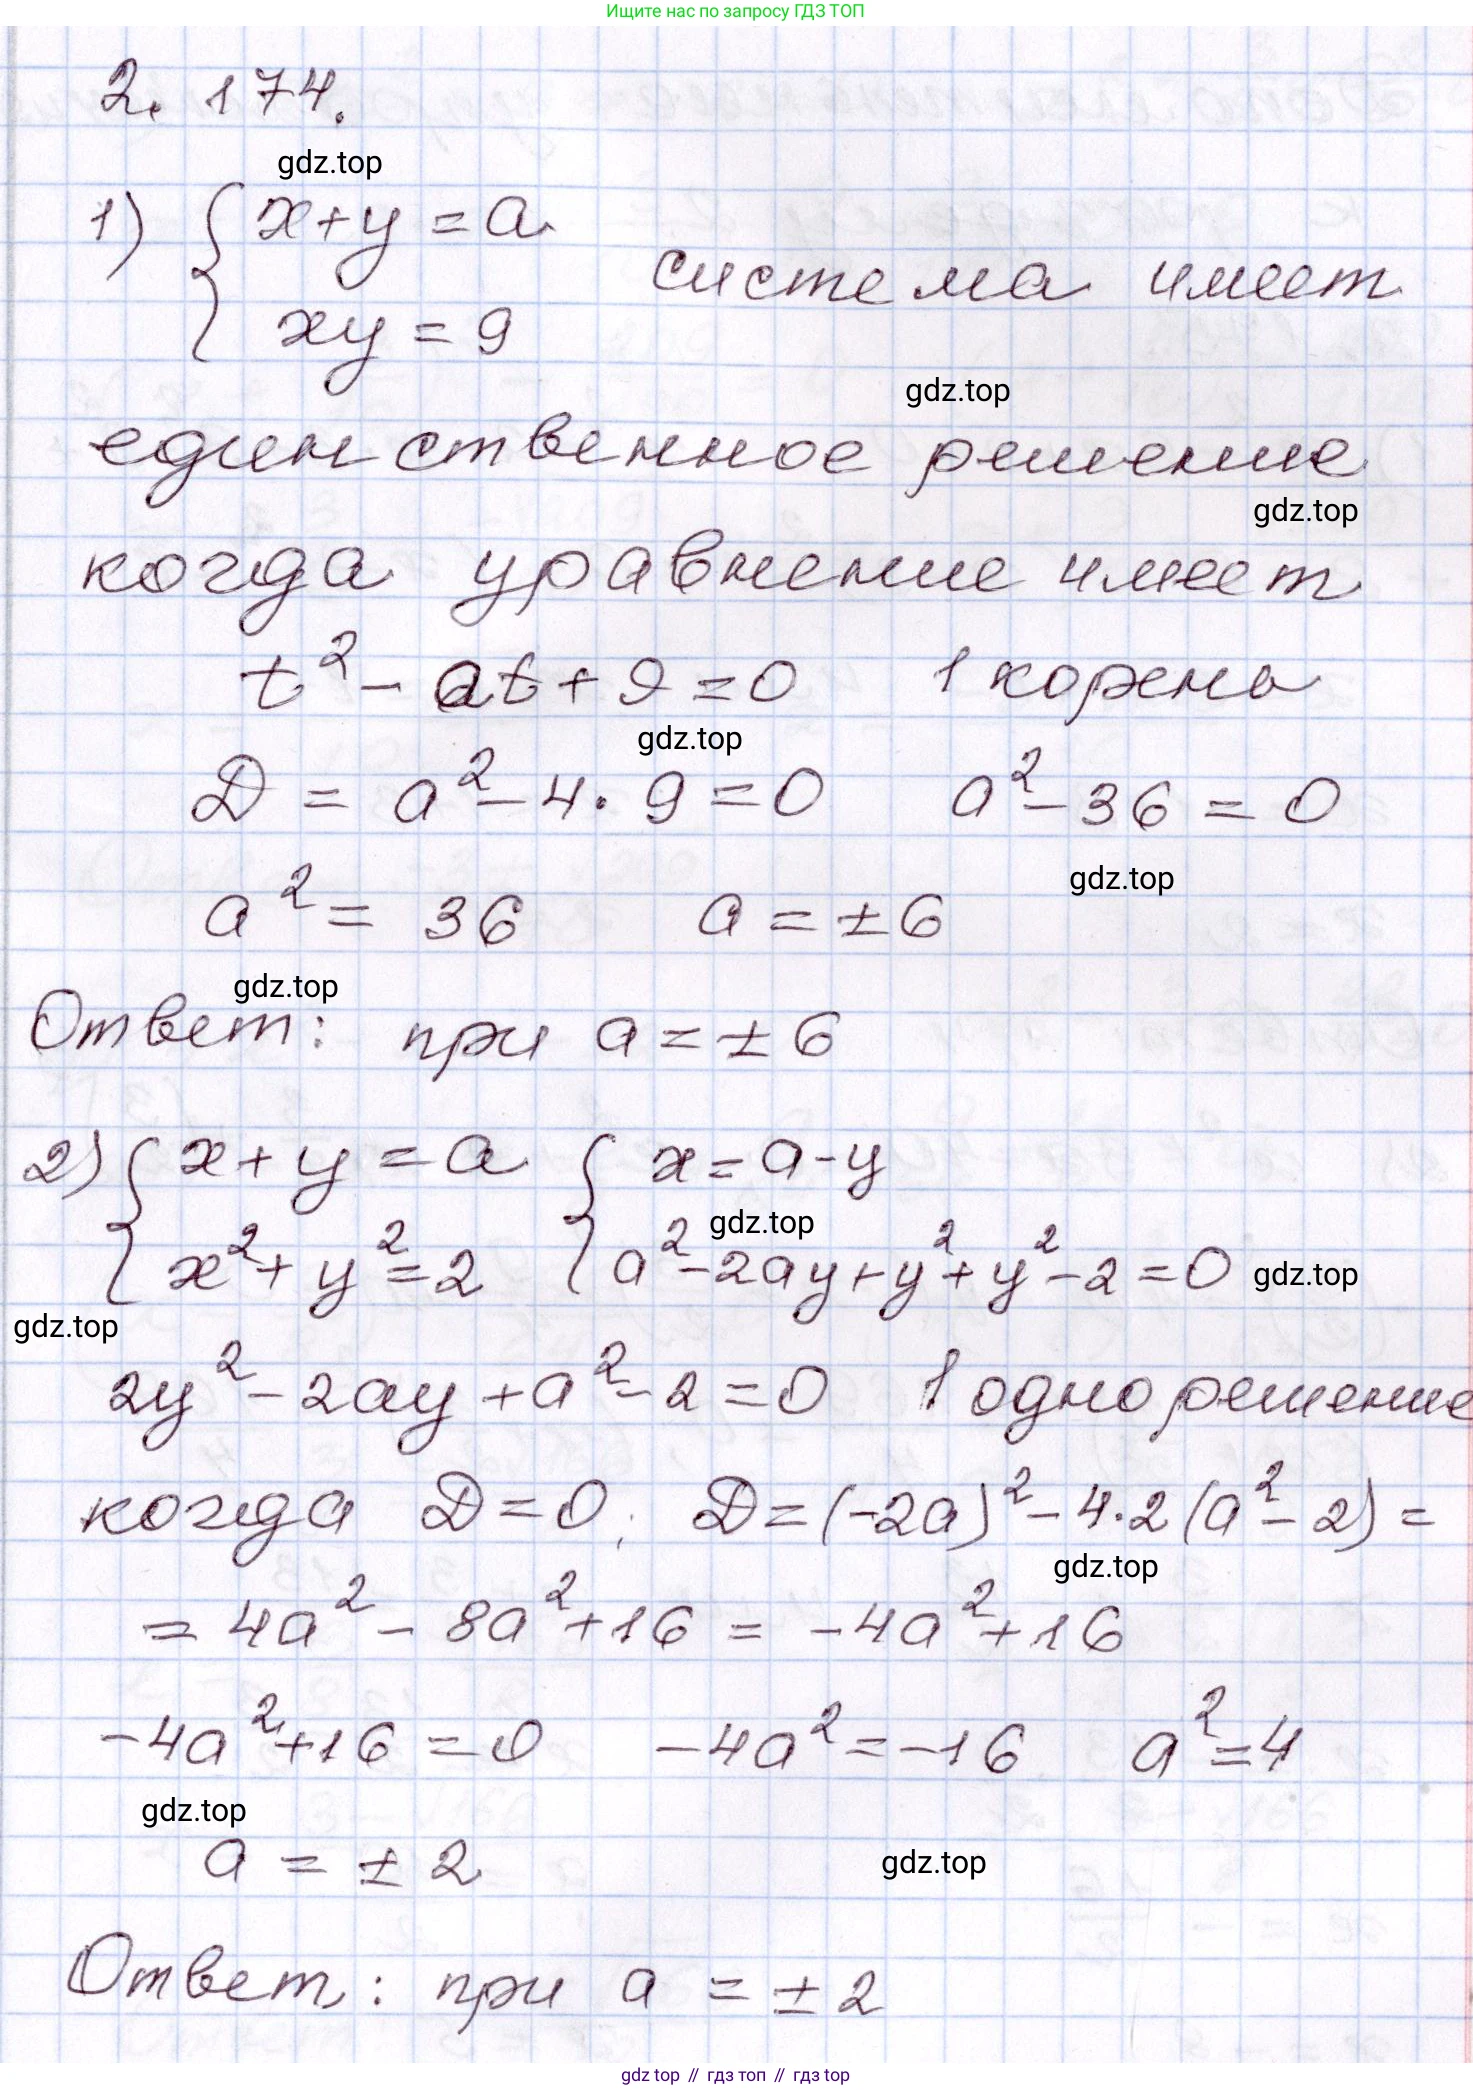 Ищите нас по запросу ГДЗ ТОП
2. 174.
gdz.top
1) { x+y = a
xy = 9
система имеет
gdz.top
единственное решение
gdz.top
когда уравнение имеет
t² - at + 9 = 0 1 корень
gdz.top
D = a² - 4 · 9 = 0 a² - 36 = 0
gdz.top
a² = 36 a = ±6
gdz.top
Ответ: при a = ±6
2) { x+y = a { x = a-y
gdz.top
x² + y² = 2 a² - 2ay + y² + y² - 2 = 0 gdz.top
gdz.top
2y² - 2ay + a² - 2 = 0 1 одно решение
когда D = 0; D = (-2a)² - 4·2(a² - 2) =
gdz.top
= 4a² - 8a² + 16 = -4a² + 16
-4a² + 16 = 0 -4a² = -16 a² = 4
gdz.top
a = ± 2
gdz.top
Ответ: при a = ± 2
gdz.top // гдз топ // гдз top